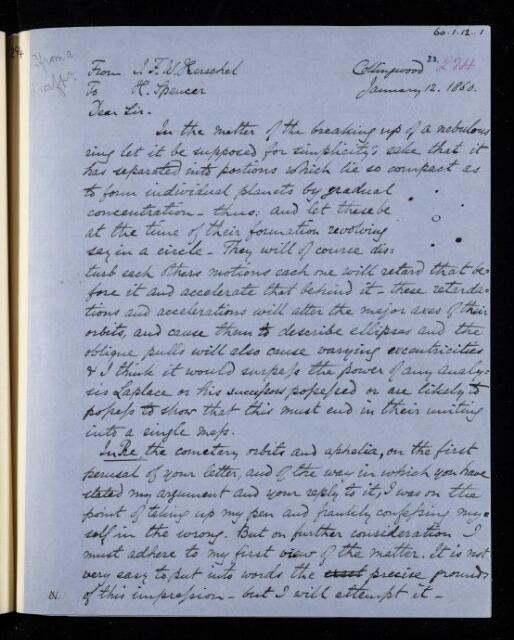 60.1.12..1
294
From J. F. W. Herschel Collingwood
To H. Spencer January 12. 1860.
Dear Sir.
In the matter of the breaking up of a nebulous
ring let it be supposed for simplicity's sake that it
has separated into portions which lie so compact as
to form individual planets by gradual
concentration - thus: and let these be
at the time of their formation revolving
say in a circle - They will of course dis=
turb each others motions each one will retard that be=
fore it and accelerate that behind it - these retarda=
tions and accelerations will alter the major axes of their
orbits, and cause them to describe ellipses and the
oblique pulls will also cause varying excentricities
& I think it would surpass the power of any analy=
sis Laplace or his successors possessed or are likely to
possess to show that this must end in their uniting
into a single mass.
In Re, the cometary orbits and aphelia, on the first
perusal of your letter, and of the way in which you have
stated my argument and your reply to it, I was on the
point of taking up my pen and frankly confessing my=
self in the wrong. But on further consideration I
must adhere to my first view of the matter. It is not
very easy to put into words the exact precise grounds
of this impression - but I will attempt it -